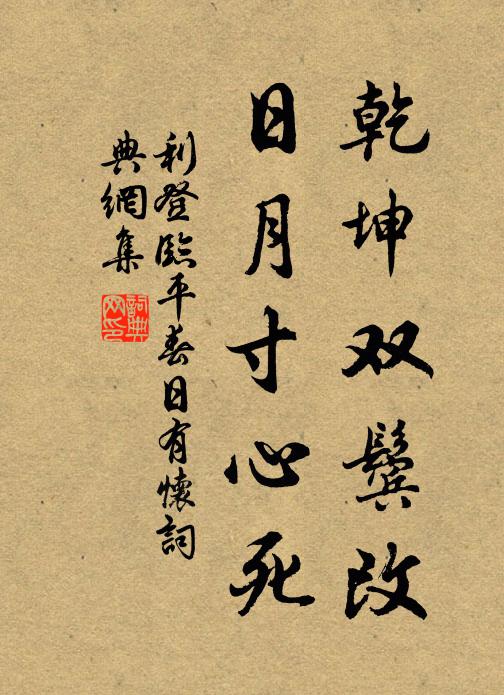 乾坤双鬓改
日月寸心死
利登臨平春日有懷詞
典網集
詞典
网印